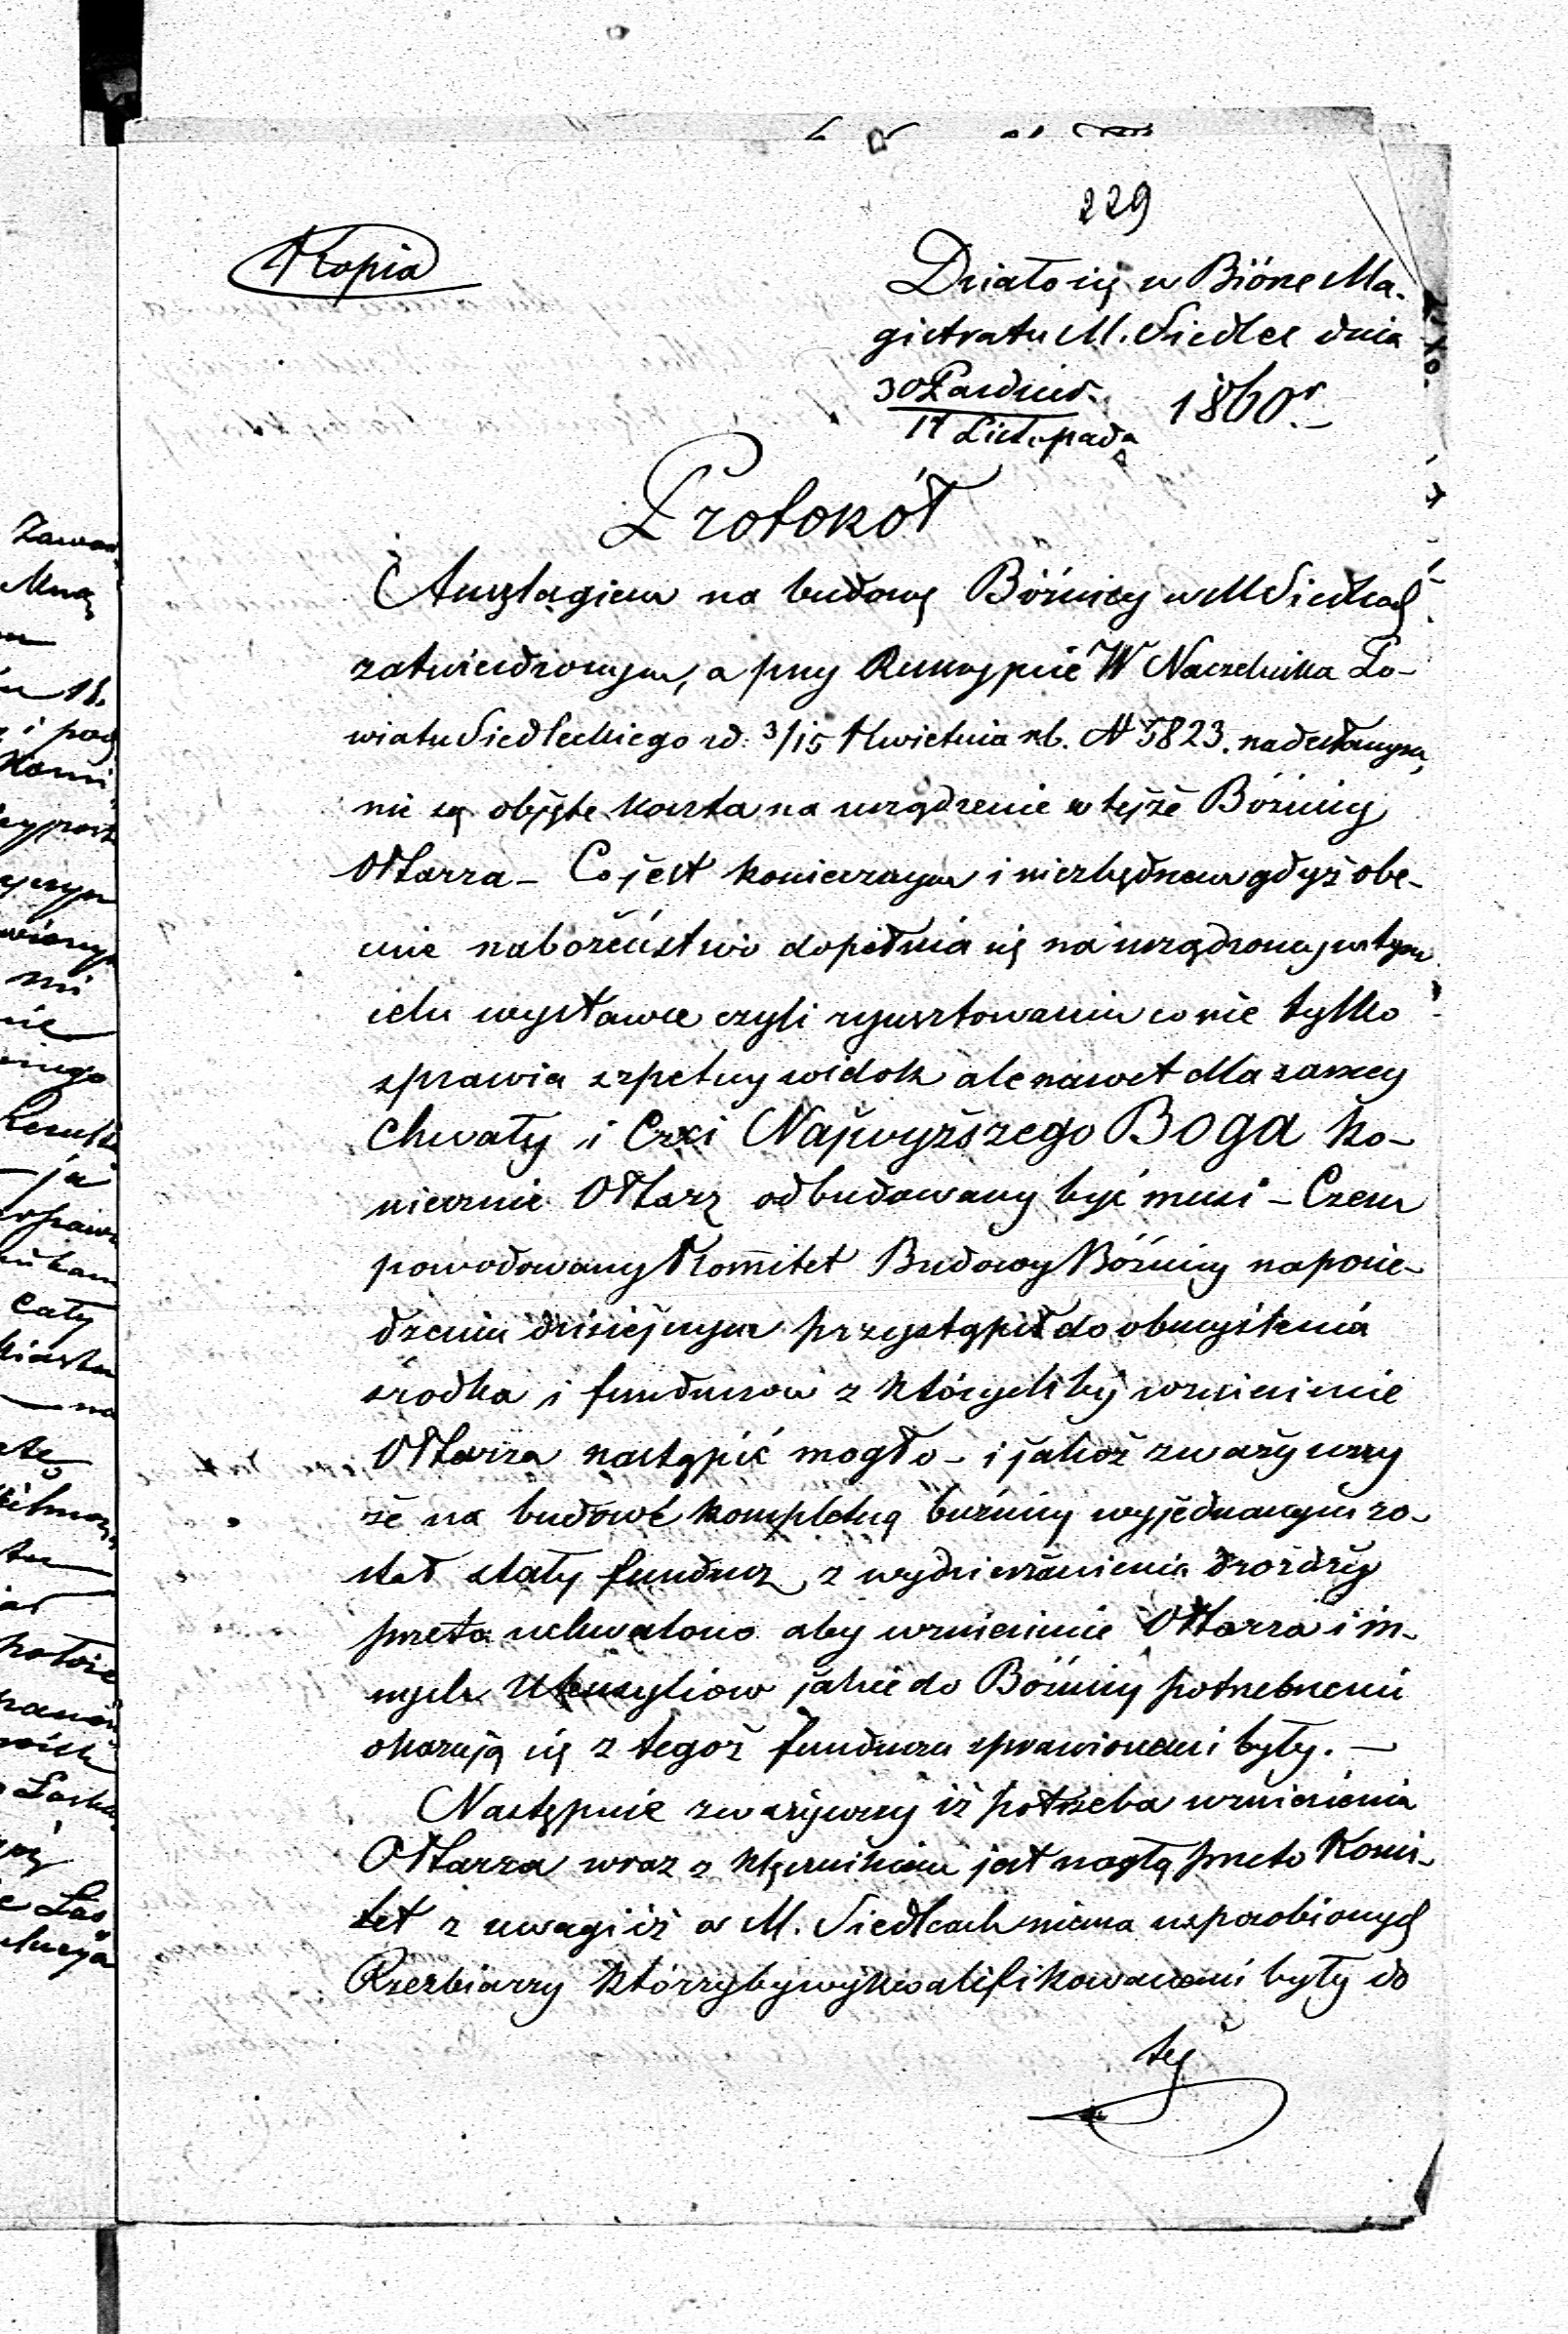 229
Kopia
Działo się w Biórze Ma-
gistratu M. Siedlec dnia
30 Paździer.
11 Listopada 1860 r.
Protokół
Anszlagiem na budowę Bóżnicy w M Siedlcach
zatwierdzonym, a przy Reskrypcie W Naczelnika Po-
wiatu Siedleckiego zd. 3/15 Kwietnia rb. N 5823. nadesłanym,
nie są objęte koszta na urządzenie w tejże Bóżnicy
Ołtarza - Co jest koniecznym i niezbędnem gdyż obe-
cnie nabożeństwo dopełnia się na urządzonej w tym
celu wystawce czyli rysztowaniu co nie tylko
sprawia szpetny widok ale nawet dla samey
Chwały i Czci Najwyższego Boga ko-
niecznie Ołtarz odbudowany być musi - Czem
powodowany Komitet Budowy Bóżnicy na posie-
dzeniu dzisiejszym przystąpił do obmyślenia
środka i funduszów z którychby wzniesienie
Ołtarza nastąpić mogło - i jakoż zważywszy
że na budowę kompletną bużnicy wyjednanym zo-
stał stały fundusz z wydzierżawienia drożdży
przeto uchwalono aby wzniesienie Ołtarza i in-
nych Utensyliów jakie do Bóżnicy potrzebnemi
okazują się z tegoż funduszu sprawionemi były. -
Następnie zważywszy iż potrzeba wzniesienia
Ołtarza wraz z jest nagłą przeto Komi-
tet z uwagi iż w M. Siedlcach niema usposobionych
Rzezbiarzy którzyby wykwalifikowanemi były do
tej
Zawar
i pod
Komi
nie
ja
cały
na